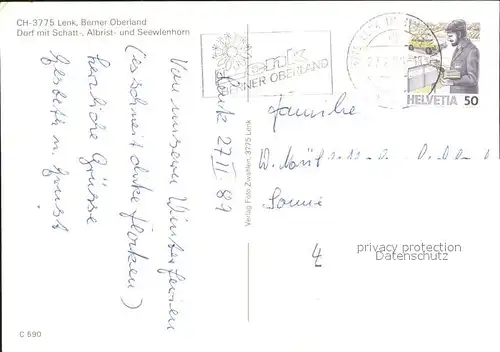 CH-3775 Lenk, Berner Oberland
Dorf mit Schatt-, Albrist- und Seewlenhorn
Lenk
BERNER OBERLAND
HELVETIA 50
Lenk 27 II. 87
Von unseren Winterferien
(es schneit dicke Flocken)
herzliche Grüsse
Gerbeth u. Ernst
Verlag Foto Zwahlen, 3775 Lenk
Familie
W.
4
privacy protection
Datenschutz
C 590